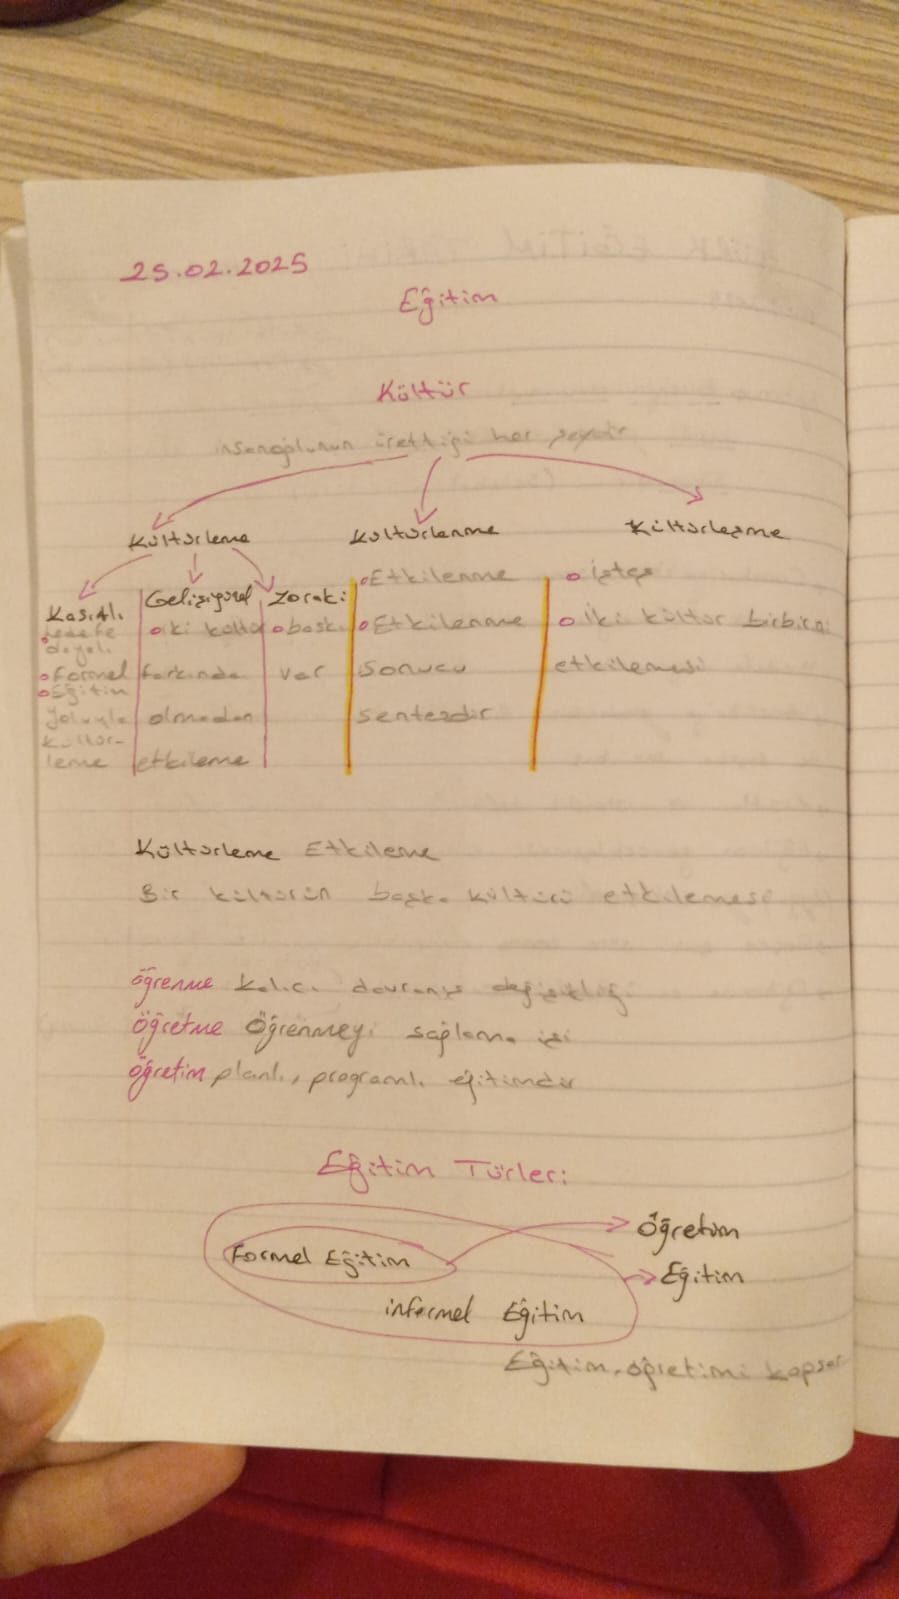 25.02.2025
Eğitim
Kültür
insanoğlunun ürettiği her şeydir
Kültürleme
Kültürlenme
Kültürleşme
Kasıtlı
hedefe
dayalı
Formel
Eğitim
Yoluyla
kültür-
leme
Gelişigüzel
iki kültür
farkında
olmadan
etkileme
Zoraki
baskı
var
Etkilenme
Etkilenme
sonucu
sentezdir
İşteş
İki kültür birbirini
etkilemesi
Kültürleme Etkileme
Bir kültürün başka kültürü etkilemesi
öğrenme kalıcı davranış değişikliği
öğretme öğrenmeyi sağlama işi
öğretim planlı, programlı eğitimdir
Eğitim Türleri
Formel Eğitim
Öğretim
Eğitim
informel Eğitim
Eğitim, öğretimi kapsar